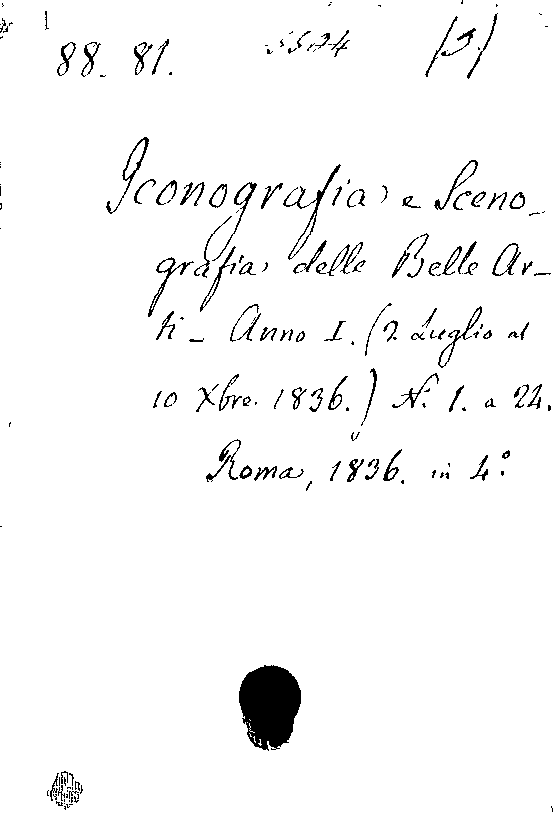 88. 81. 5524 (3.)
Iconografia e Sceno-
grafia delle Belle Ar-
ti - Anno I. (2 Luglio al
10 Xbre. 1836.) N. 1. a 24.
Roma, 1836. in 4.°